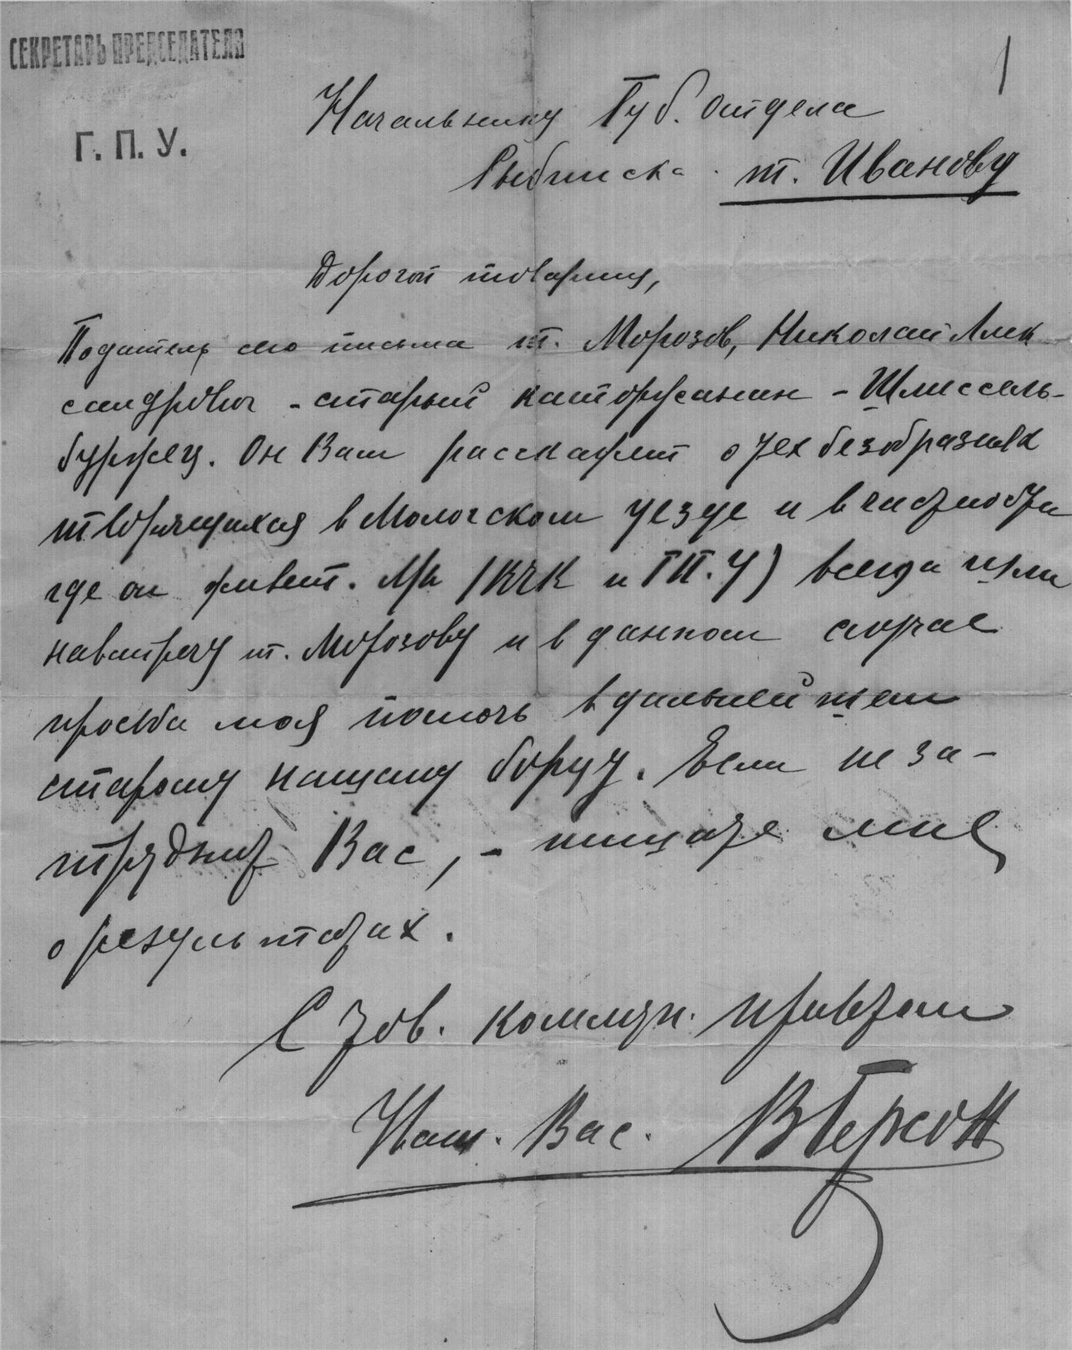 СЕКРЕТАРЬ ПРЕДСЕДАТЕЛЯ
Г. П. У.
1
Начальнику Губ. отдела
Рыбинска т. Иванову
Дорогой товарищ,
Податель сего письма т. Морозов, Николай Алек
сандрович - старый каторжанин - Шлиссель-
буржец. Он Вам расскажет о тех безобразиях
творящихся в Мологском уезде и в частности
где он живет. Мы (ВЧК и ГП.У) всегда шли
навстречу т. Морозову и в данном случае
просьба моя помочь в дальнейшем
старому нашему борцу. Если не за-
труднит Вас, - пишите мне
о результатах.
С тов. коммун. приветом
Вас.